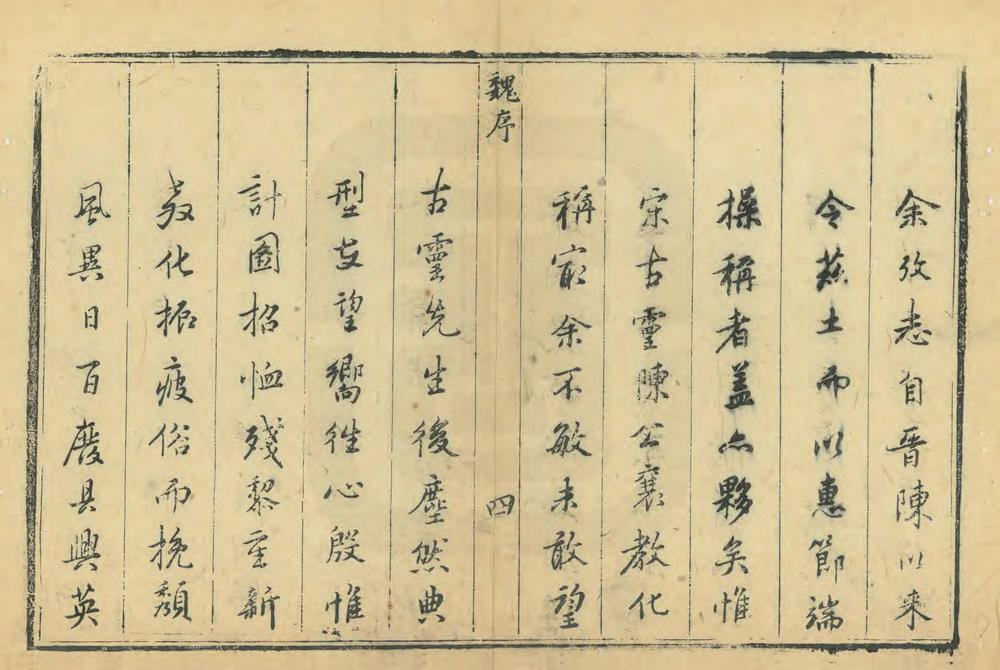 余攷志自晉陳以来
令茲土而以惠節端
操稱者盖亦夥矣惟
宋古靈陳公襄教化
稱㝡余不敏未敢望
魏序
四
古靈先生後塵然典
型在望嚮徃心殷惟
計圖招恤殘黎重新
教化振疲俗而挽頹
風異日百廢具興英